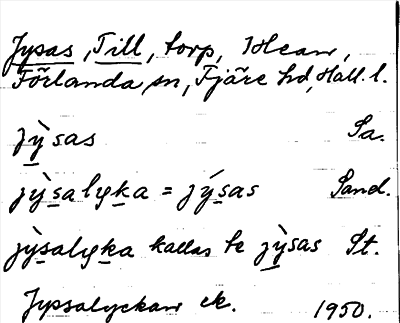 Jysas, Till, torp, 1 Hean,
Förlanda sn, Fjäre hd, Hall. l.
jỳsas Sa.
jỳsalyka = jýsas Sand.
jỳsalyka kallas te jỳsas St.
Jyssalyckan ek. 1950.